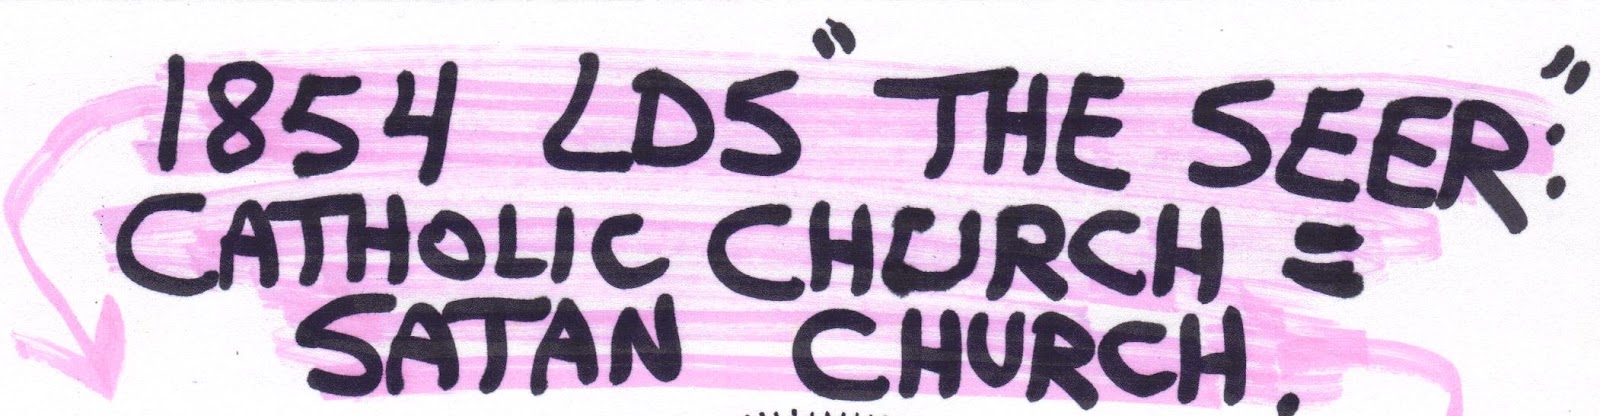 1854 LDS "THE SEER":
CATHOLIC CHURCH =
SATAN CHURCH.